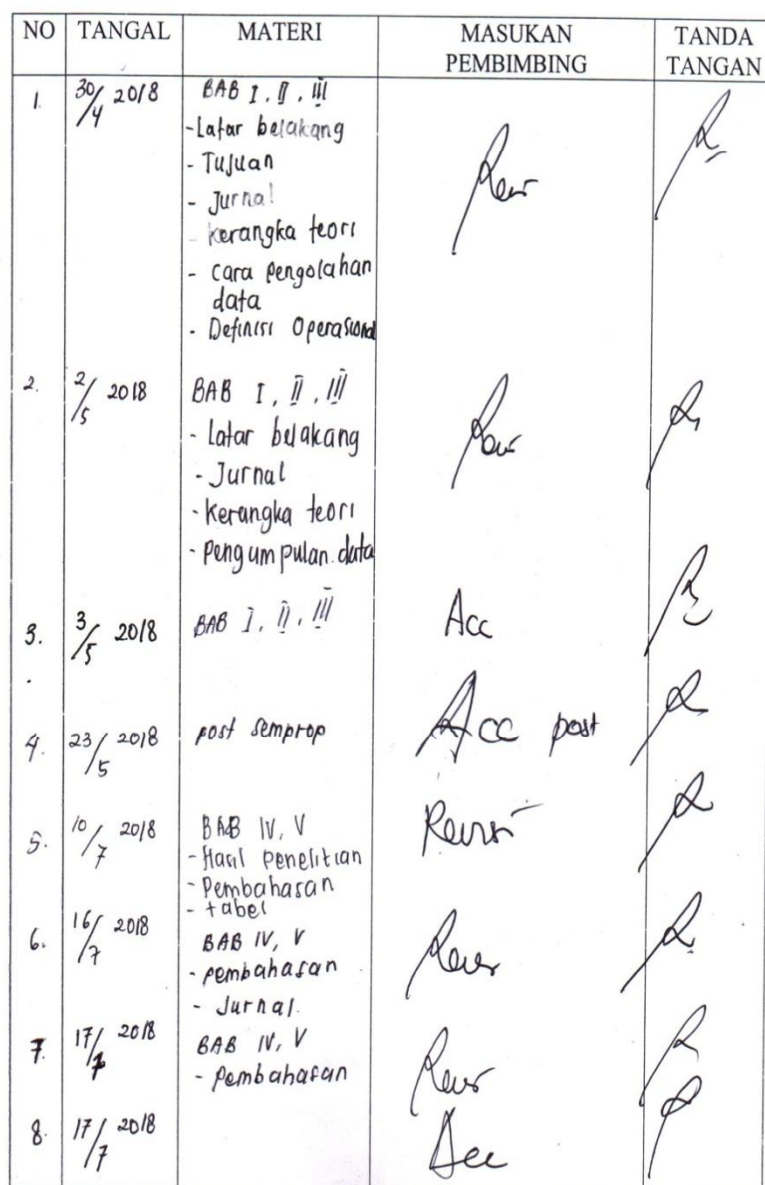 NO TANGAL MATERI MASUKAN PEMBIMBING TANDA TANGAN
1. 30/4 2018 BAB I, II, III
- Latar belakang
- Tujuan
- Jurnal
- Kerangka teori
- Cara pengolahan
data
- Definisi Operasional
2. 2/5 2018 BAB I, II, III
- Latar belakang
- Jurnal
- Kerangka teori
- Pengumpulan data
3. 3/5 2018 BAB I, II, III Acc
4. 23/5 2018 post semprop Acc post
5. 10/7 2018 BAB IV, V Revisi
- Hasil penelitian
- Pembahasan
- tabel
6. 16/7 2018 BAB IV, V
- pembahasan
- Jurnal.
7. 17/7 2018 BAB IV, V
- Pembahasan
8. 17/7 2018 Acc